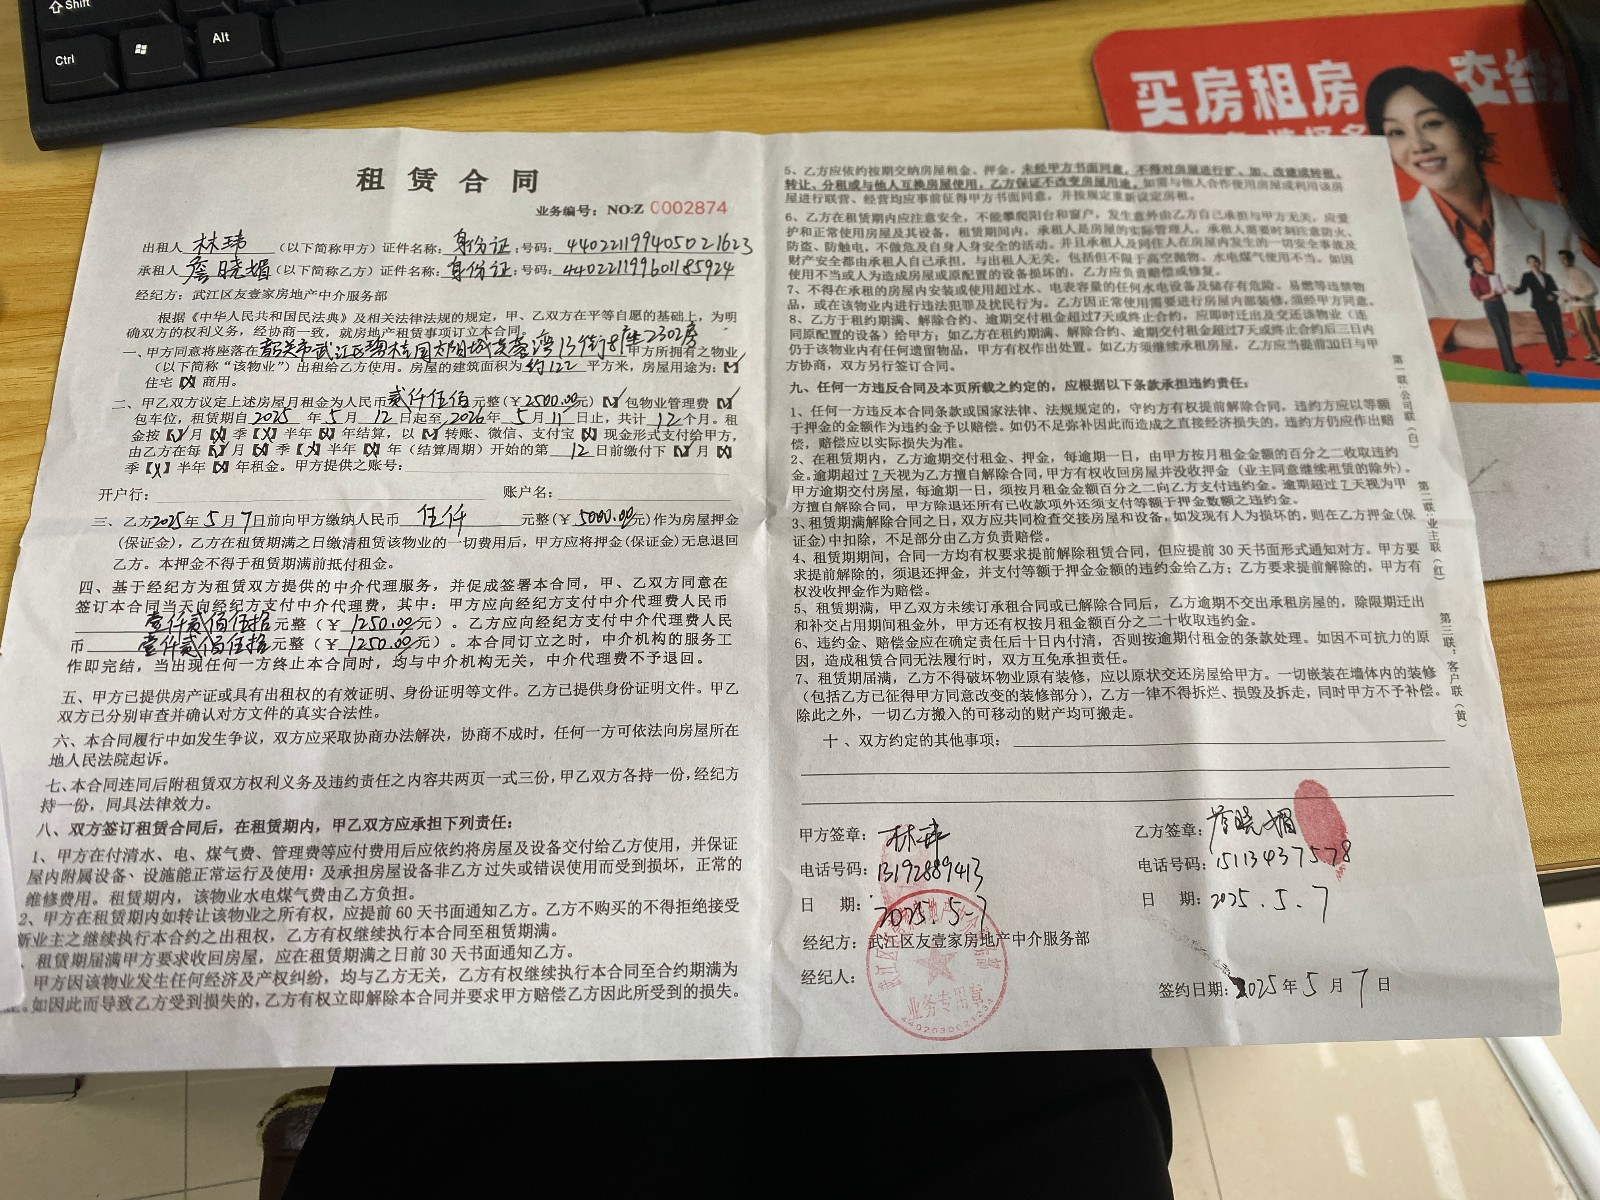 Shift
Ctrl
Alt
买房租房
交给
租赁合同
业务编号：NO:Z 0002874
出租人 林玮 （以下简称甲方）证件名称：身份证 号码：440221199405021623
承租人 詹晓媚 （以下简称乙方）证件名称：身份证 号码：440221199601185924
经纪方：武江区友壹家房地产中介服务部
根据《中华人民共和国民法典》及相关法律法规的规定，甲、乙双方在平等自愿的基础上，为明
确双方的权利义务，经协商一致，就房地产租赁事项订立本合同。
一、甲方同意将座落在 韶关市武江区碧桂园太阳城芙蓉湾13街8座2302房 甲方所拥有之物业
（以下简称“该物业”）出租给乙方使用。房屋的建筑面积为 约122 平方米，房屋用途为：【✓】
住宅【X】商用。
二、甲乙双方议定上述房屋月租金为人民币 贰仟伍佰 元整（¥2500.00元）【✓】包物业管理费【✓】
包车位，租赁期自 2025 年 5 月 12 日起至 2026 年 5 月 11 日止，共计 12 个月。租
金按【✓】月【X】季【X】半年【X】年结算，以【✓】转账、微信、支付宝【X】现金形式支付给甲方，
由乙方在每【✓】月【X】季【X】半年【X】年（结算周期）开始的第 12 日前缴付下【✓】月【X】
季【X】半年【X】年租金。甲方提供之账号：
开户行： 账户名：
三、乙方2025年5月7日前向甲方缴纳人民币 伍仟 元整（¥5000.00元）作为房屋押金
（保证金），乙方在租赁期满之日缴清租赁该物业的一切费用后，甲方应将押金（保证金）无息退回
乙方。本押金不得于租赁期满前抵付租金。
四、基于经纪方为租赁双方提供的中介代理服务，并促成签署本合同，甲、乙双方同意在
签订本合同当天向经纪方支付中介代理费，其中：甲方应向经纪方支付中介代理费人民币
壹仟贰佰伍拾元整（¥ 1250.00元）。乙方应向经纪方支付中介代理费人民
币 壹仟贰佰伍拾元整（¥ 1250.00元）。本合同订立之时，中介机构的服务工
作即完结，当出现任何一方终止本合同时，均与中介机构无关，中介代理费不予退回。
五、甲方已提供房产证或具有出租权的有效证明、身份证明等文件。乙方已提供身份证明文件。甲乙
双方已分别审查并确认对方文件的真实合法性。
六、本合同履行中如发生争议，双方应采取协商办法解决，协商不成时，任何一方可依法向房屋所在
地人民法院起诉。
七、本合同连同后附租赁双方权利义务及违约责任之内容共两页一式三份，甲乙双方各持一份，经纪方
持一份，同具法律效力。
八、双方签订租赁合同后，在租赁期内，甲乙双方应承担下列责任：
1、甲方在付清水、电、煤气费、管理费等应付费用后应依约将房屋及设备交付给乙方使用，并保证
屋内附属设备、设施能正常运行及使用；及承担房屋设备非乙方过失或错误使用而受到损坏，正常的
维修费用。租赁期内，该物业水电煤气费由乙方负担。
2、甲方在租赁期内如转让该物业之所有权，应提前60天书面通知乙方。乙方不购买的不得拒绝接受
新业主之继续执行本合约之出租权，乙方有权继续执行本合同至租赁期满。
、租赁期届满甲方要求收回房屋，应在租赁期满之日前30天书面通知乙方。
甲方因该物业发生任何经济及产权纠纷，均与乙方无关，乙方有权继续执行本合同至合约期满为
。如因此而导致乙方受到损失的，乙方有权立即解除本合同并要求甲方赔偿乙方因此所受到的损失。
5、乙方应依约按期交纳房屋租金、押金，未经甲方书面同意，不得对房屋进行扩、加、改建或转租、
转让、分租或与他人互换房屋使用，乙方保证不改变房屋用途，如需与他人合作使用房屋或利用该房
屋进行联营、经营均应事前征得甲方书面同意，并按规定重新议定房租。
6、乙方在租赁期内应注意安全，不能攀爬阳台和窗户，发生意外由乙方自己承担与甲方无关，应爱
护和正常使用房屋及其设备，租赁期间内，承租人是房屋的实际管理人，承租人需要时刻注意防火、
防盗、防触电，不做危及自身人身安全的活动。并且承租人及同住人在房屋内发生的一切安全事故及
财产安全都由承租人自己承担，与出租人无关，包括但不限于高空抛物、水电煤气使用不当。如因
使用不当或人为造成房屋或原配置的设备损坏的，乙方应负责赔偿或修复。
7、不得在承租的房屋内安装或使用超过水、电表容量的任何水电设备及储存有危险、易燃等违禁物
品，或在该物业内进行违法犯罪及扰民行为。乙方因正常使用需要进行房屋内部装修，须经甲方同意。
8、乙方于租约期满、解除合约、逾期交付租金超过7天或终止合约，应即时迁出及交还该物业（连
同原配置的设备）给甲方；如乙方在租约期满、解除合约、逾期交付租金超过7天或终止合约后三日内
仍于该物业内有任何遗留物品，甲方有权作出处置。如乙方须继续承租房屋，乙方应当提前30日与甲
方协商，双方另行签订合同。
九、任何一方违反合同及本页所载之约定的，应根据以下条款承担违约责任：
1、任何一方违反本合同条款或国家法律、法规规定的，守约方有权提前解除合同，违约方应以等额
于押金的金额作为违约金予以赔偿。如仍不足弥补因此而造成之直接经济损失的，违约方仍应作出赔
偿，赔偿应以实际损失为准。
2、在租赁期内，乙方逾期交付租金、押金，每逾期一日，由甲方按月租金金额的百分之二收取违约
金。逾期超过7天视为乙方擅自解除合同，甲方有权收回房屋并没收押金（业主同意继续租赁的除外）。
甲方逾期交付房屋，每逾期一日，须按月租金金额百分之二向乙方支付违约金。逾期超过7天视为甲
方擅自解除合同，甲方除退还所有已收款项外还须支付等额于押金数额之违约金。
3、租赁期满解除合同之日，双方应共同检查交接房屋和设备，如发现有人为损坏的，则在乙方押金（保
证金）中扣除，不足部分由乙方负责赔偿。
4、租赁期期间，合同一方均有权要求提前解除租赁合同，但应提前30天书面形式通知对方。甲方要
求提前解除的，须退还押金，并支付等额于押金金额的违约金给乙方；乙方要求提前解除的，甲方有
权没收押金作为赔偿。
5、租赁期满，甲乙双方未续订承租合同或已解除合同后，乙方逾期不交出承租房屋的，除限期迁出
和补交占用期间租金外，甲方还有权按月租金金额百分之二十收取违约金。
6、违约金、赔偿金应在确定责任后十日内付清，否则按逾期付租金的条款处理。如因不可抗力的原
因，造成租赁合同无法履行时，双方互免承担责任。
7、租赁期届满，乙方不得破坏物业原有装修，应以原状交还房屋给甲方。一切嵌装在墙体内的装修
（包括乙方已征得甲方同意改变的装修部分），乙方一律不得拆烂、损毁及拆走，同时甲方不予补偿。
除此之外，一切乙方搬入的可移动的财产均可搬走。
十、双方约定的其他事项：
甲方签章：林玮
电话号码：13192889413
日 期：2025.5-7
经纪方：武江区友壹家房地产中介服务部
经纪人：
乙方签章：詹晓媚
电话号码：15113437578
日 期：2025.5.7
签约日期：2025年5月7日
业务专用章
第一联：公司联（白）
第二联：业主联（红）
第三联：客户联（黄）